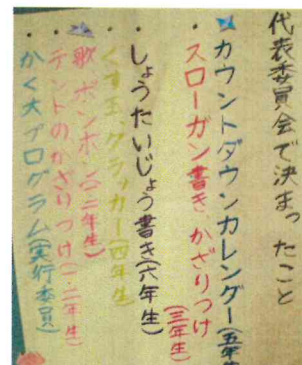 代表委員会で決まったこと
・カウントダウンカレンダー(五年生
・スローガン書き、かざりつけ
(三年生)
・しょうたいじょう書き(六年生)
・くす玉、クラッカー(四年生)
・歌、ポンポン(二年生)
・テントのかざりつけ(一二年生)
・かく大プログラム(実行委員)